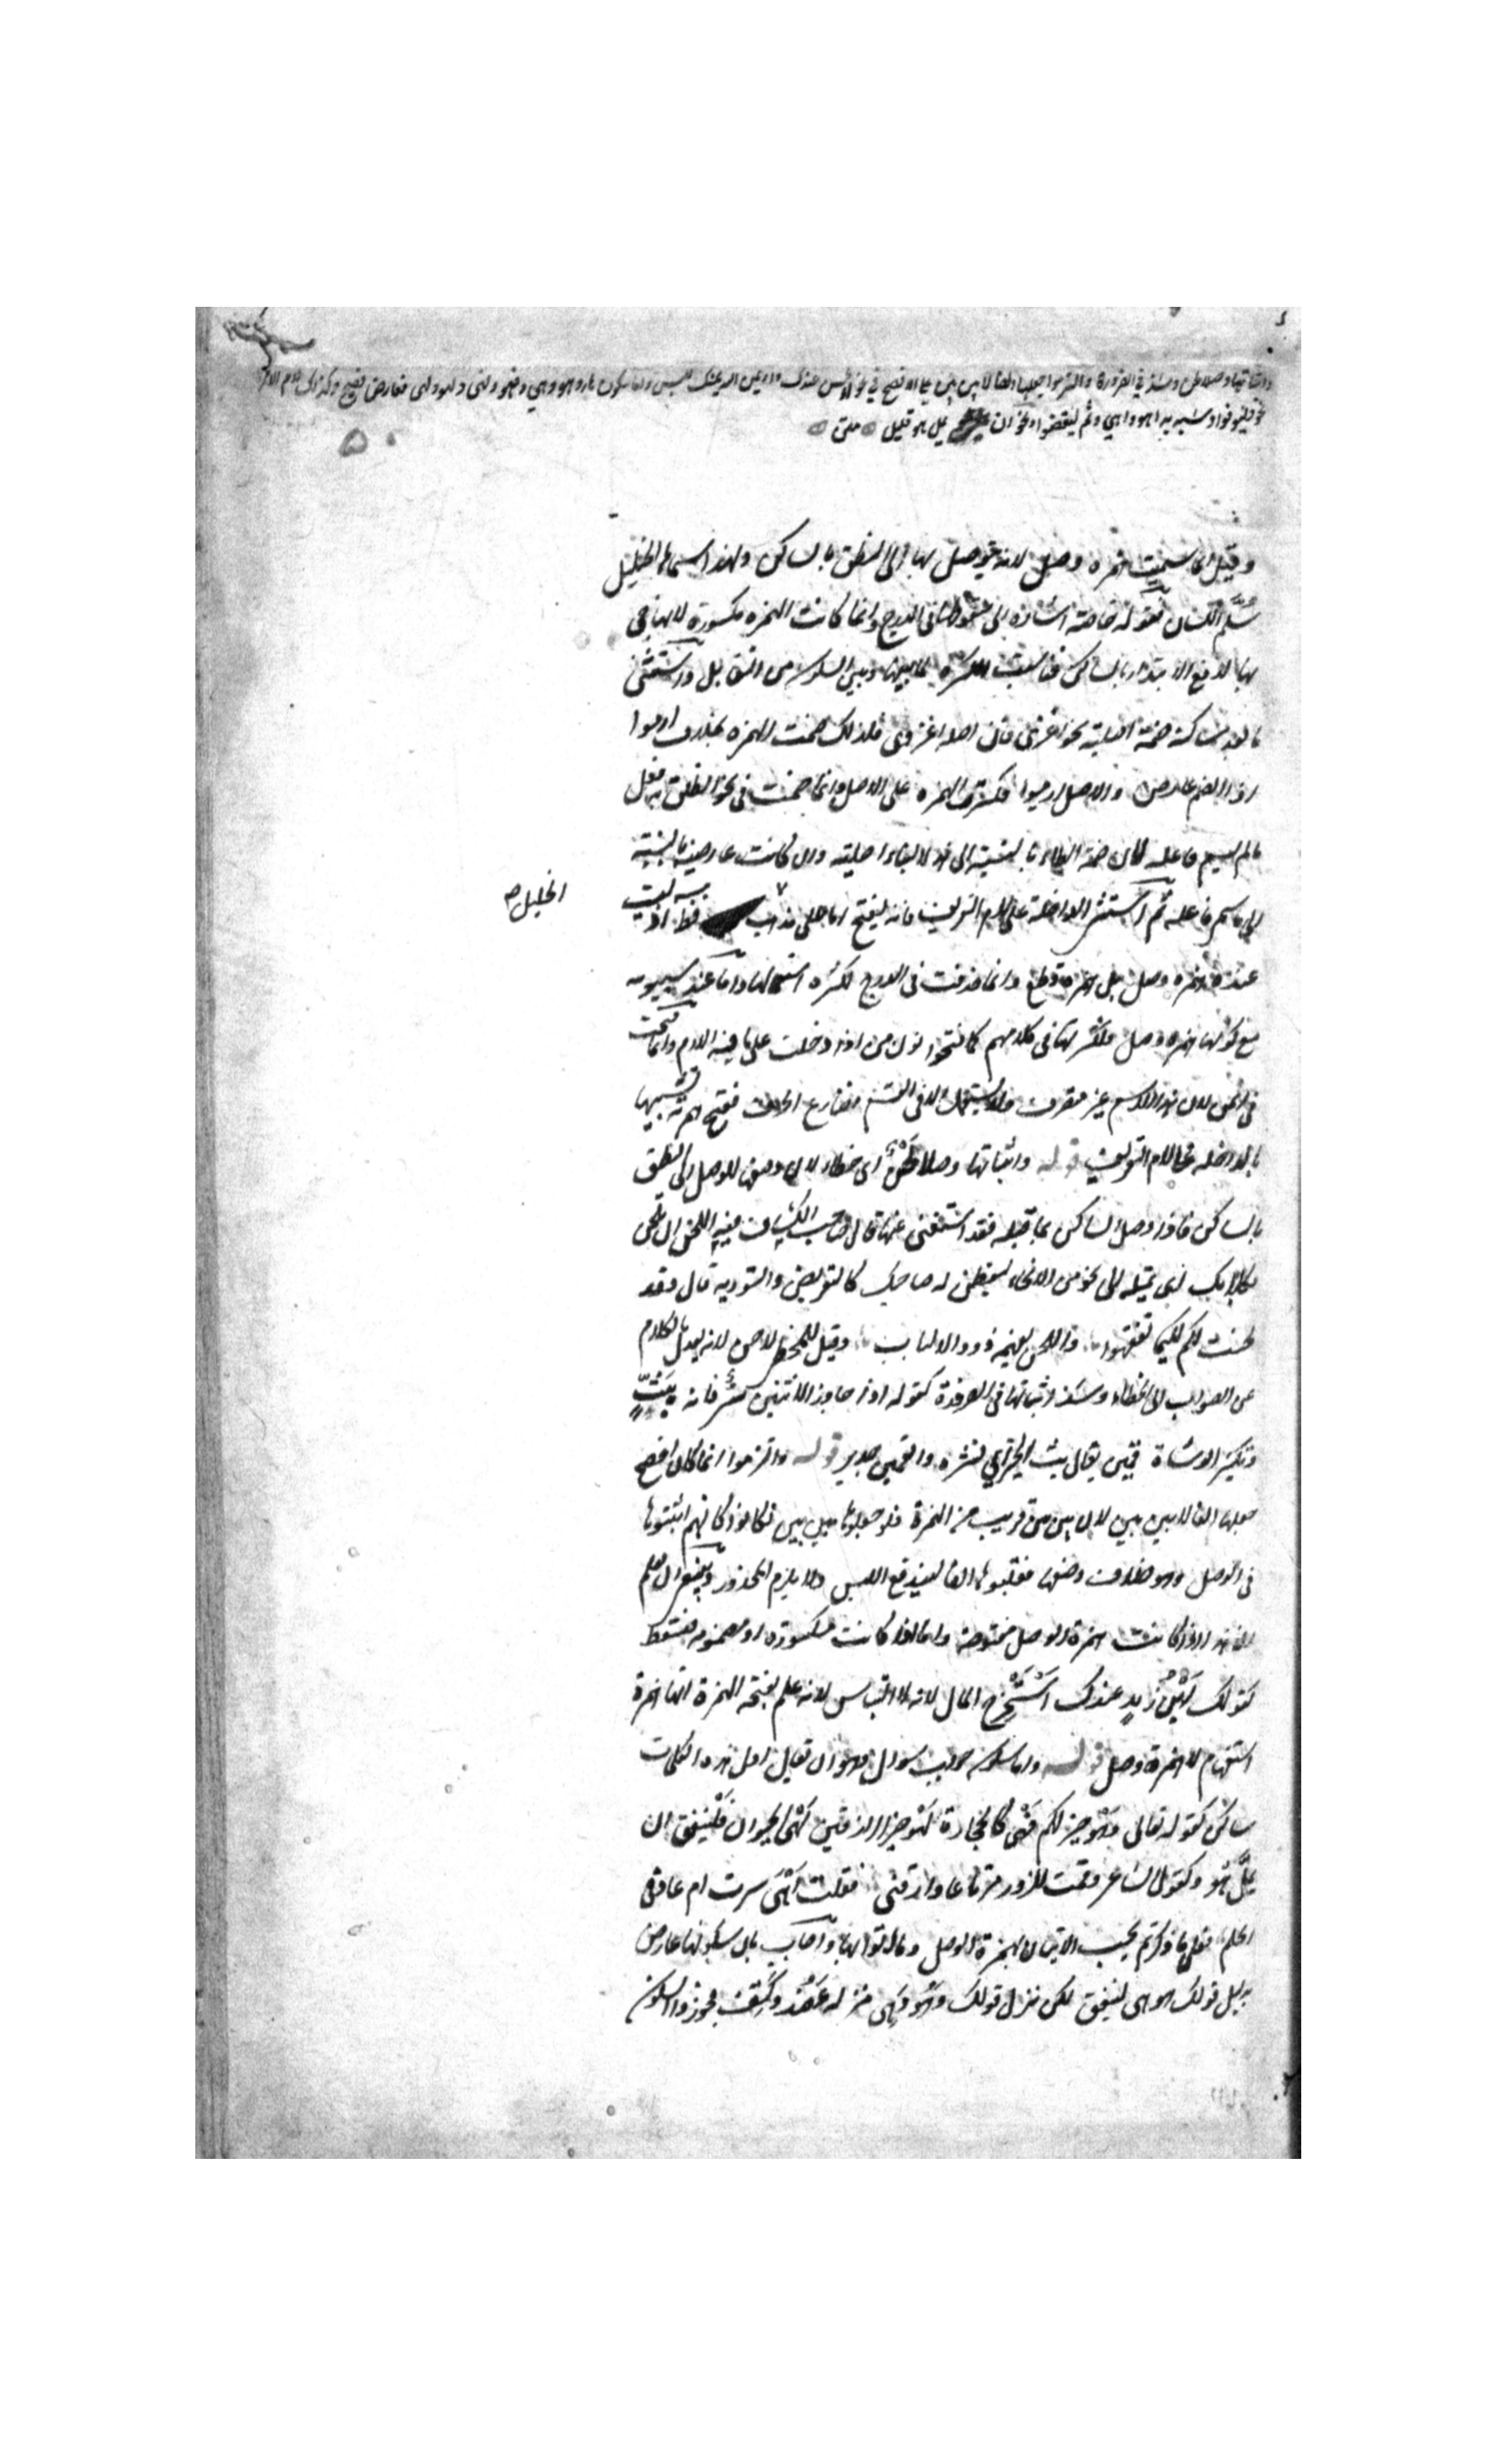 واثباتها وصلا لحن وشذ في الضرورة والتزموا جعلها الفا لا بين بين على الافصح في نحو آلحسن عندك وآيمن الله يمينك للبس واما سكون هاء وهو وهي وفهو وفهي ولهو ولهي فعارض فصيح وكذلك لام الامر
نحو وليوفوا وشبه به اهو واهي وثم ليقضوا ونحو ان يمل هو قليل متن
وقيل انما سميت همزة وصل لانه يتوصل بها الى النطق بالساكن ولهذا سماها الخليل
سُلَّم اللسان فقوله خاصة اشارة الى سقوطها في الدرج وانما كانت الهمزة مكسورة لانها جي
بها لدفع الابتداء بالساكن فناسبت الكسرة لما بينها وبين السكون من التقابل واستثنى
ما بعد ساكنه ضمة اصلية نحو اغزى فان اصله اغزوى فلذلك ضمت الهمزة بخلاف ارموا
اذ الضم عارض والاصل ارميوا فكسرت الهمزة على الاصل وانما ضمت في نحو انطلق به فعل
ما لم يسم فاعله لان ضمة الطاء بالنسبة الى هذا البناء اصلية وان كانت عارضة بالنسبة
الى ما سمي فاعله ثم استثنى الداخلة على لام التعريف فانه يفتح اما على مذهب فظ اذ ليست
الخليل صح
عنده همزة وصل بل همزة قطع وانما حذفت في الدرج لكثرة استعمالها واما عند سيبويه
مع كونها همزة وصل فلكثرتها في كلامهم كما فتحوا نون من اذا دخلت على ما فيه اللام وانما فتحت
في ايمن لان هذا الاسم غير متصرف ولا يستعمل الا في القسم فضارع الحرف ففتح همزته تشبيها
بالداخلة على لام التعريف قوله واثباتها وصلا لَحْنٌ اى خطاء لان وضعها للوصل الى النطق
بالساكن فاذا وصل الساكن بما قبله فقد استغنى عنها قال صاحب الكشاف فيه اللحن ان تلحن
بكلامك اى تميله الى نحو من الانحاء ليفطن له صاحبك كالتعريض والتورية قال ولقد
لحنت لكم لكيما تفقهوا واللحن يفهمه ذوو الالباب وقيل للمخطئ لاحن لانه يعدل بالكلام
عن الصواب الى الخطاء وشذ اثباتها في الضرورة كقوله اذا جاوز الاثنين سرٌّ فانه يبَثٍّ
وتكثير الوشاة قمين يقال بث الخبر اي نشره والقمين جدير قوله والتزموا انما كان افصح
جعلها الفا لا بين بين لان بين بين قريب من الهمزة فلو جعلوها بين بين لكانوا كانهم اثبتوها
في الوصل وهو خلاف وضعها فقلبوها الفا ليندفع اللبس ولا يلزم المحذور وينبغي ان يعلم
ان هذا اذا كانت همزة الوصل مفتوحة واما اذا كانت مكسورة او مضمومة فتسقط
كقولك اَبْنُ زَيدٍ عندك اَسْتُخْرِجَ المال لانه لا التباس لانه علم بفتحه الهمزة انها همزة
استفهام لا همزة وصل قوله واما سكون جواب سوال وهو ان يقال اول هذه الكلمات
ساكن كقوله تعالى وَهْو خير لكم فَهْى كالحجارة لَهْو خير الرازقين لَهْى الحيوان فَلْينفق ان
يملَّ هْو وكقول الشاعر وقمت للزور مرتاعا وارقنى فقلت اَهْيَ سرت ام عادني
الحلم فعلى ما ذكرتم يجب الاتيان بهمزة الوصل وما اتوا بها واجاب بان سكونها عارض
بدليل قولك هو هى لينفق لكن نزل قولك وَهُو وَهِى منزلة عَضُد وكَتِف فجوزوا السكون